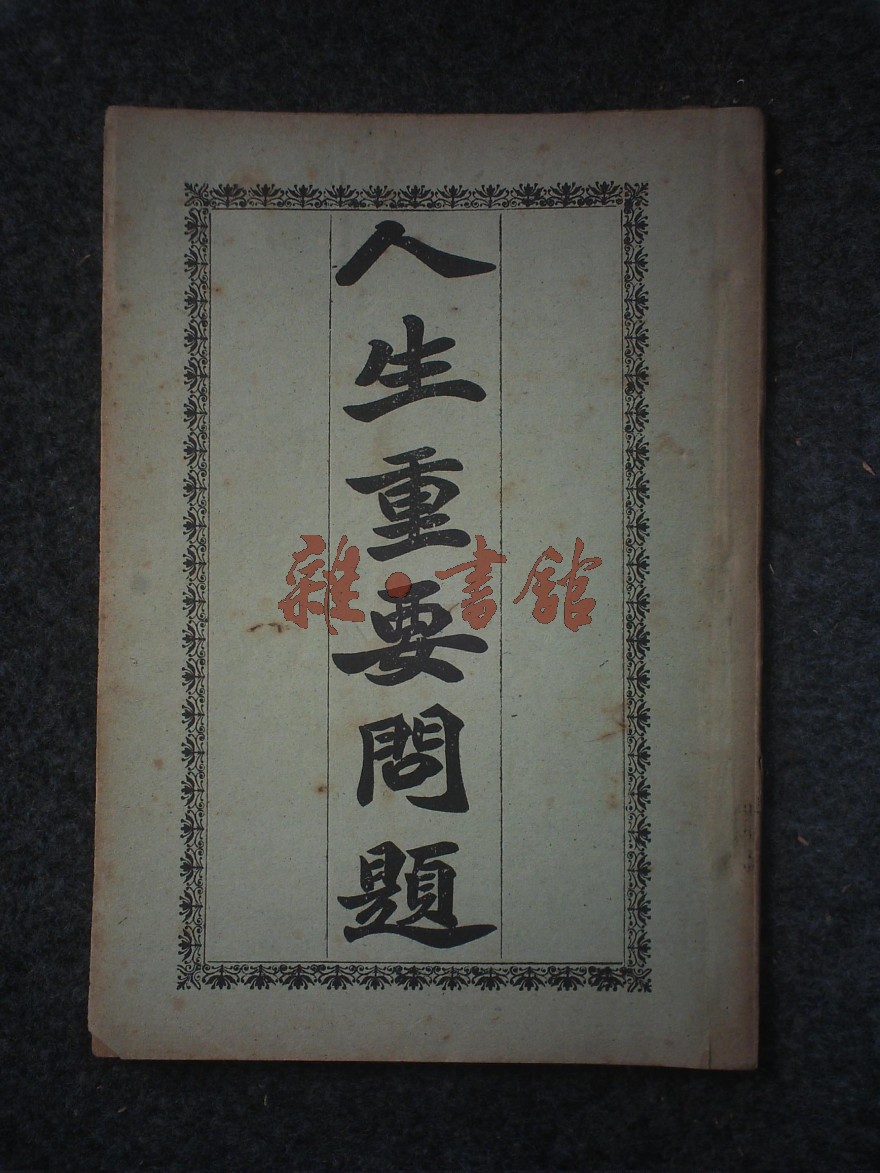 人生重要問題
雜·書館